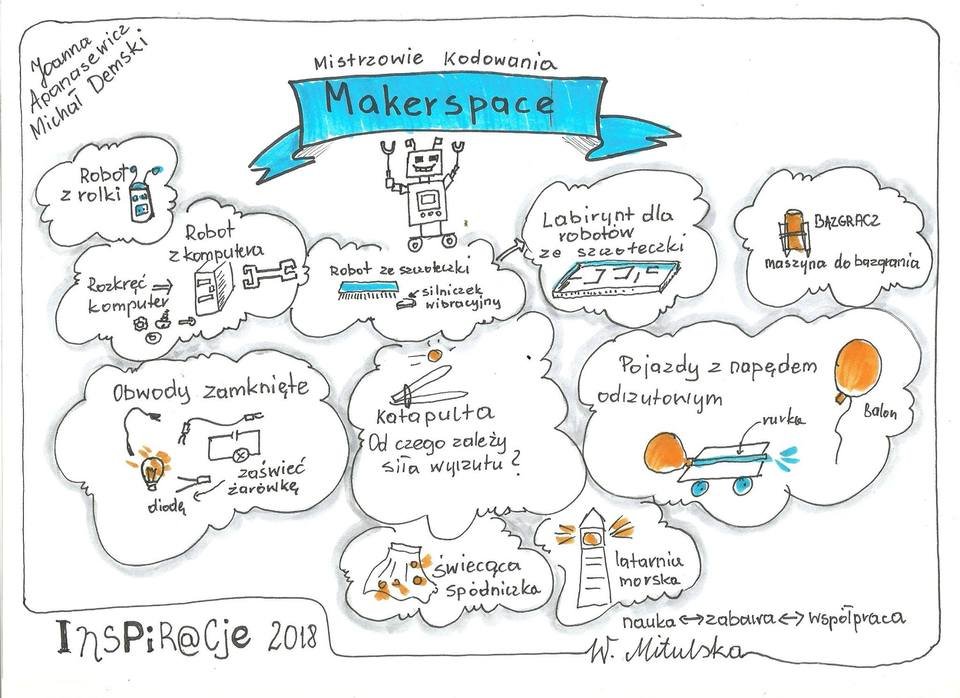 Joanna
Apanasewicz
Michał Demski
Mistrzowie Kodowania
Makerspace
Robot
z rolki
Robot
z komputera
Rozkręć
komputer
Robot ze szczoteczki
silniczek
wibracyjny
Labirynt dla
robotów
ze szczoteczki
BAZGRACZ
maszyna do bazgrania
Obwody zamknięte
zaświeć
żarówkę
diodę
Katapulta
Od czego zależy
siła wyrzutu?
Pojazdy z napędem
odrzutowym
rurka
Balon
świecąca
spódniczka
latarnia
morska
nauka ↔ zabawa ↔ współpraca
InsPiR@cje 2018
W. Mitulska